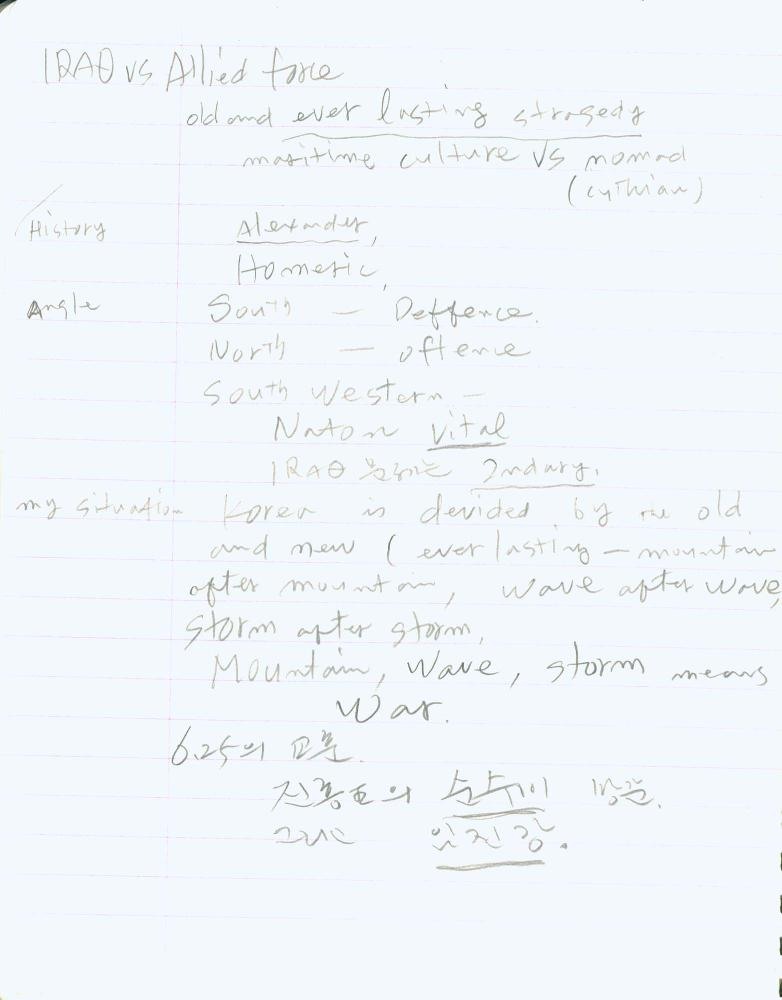 IRAQ vs Allied force
old and ever lasting stragedy
maritime culture vs nomad
(cythian)
History Alexander,
Homeric,
Angle South — Deffence.
North — offence
South Western —
Naton vital
IRAQ 2ndary.
my situation Korea is devided by the old
and new (ever lasting — mountain
after mountain, wave after wave,
storm after storm,
Mountain, wave, storm means
War.
6.25의 교훈.
의
임진강.